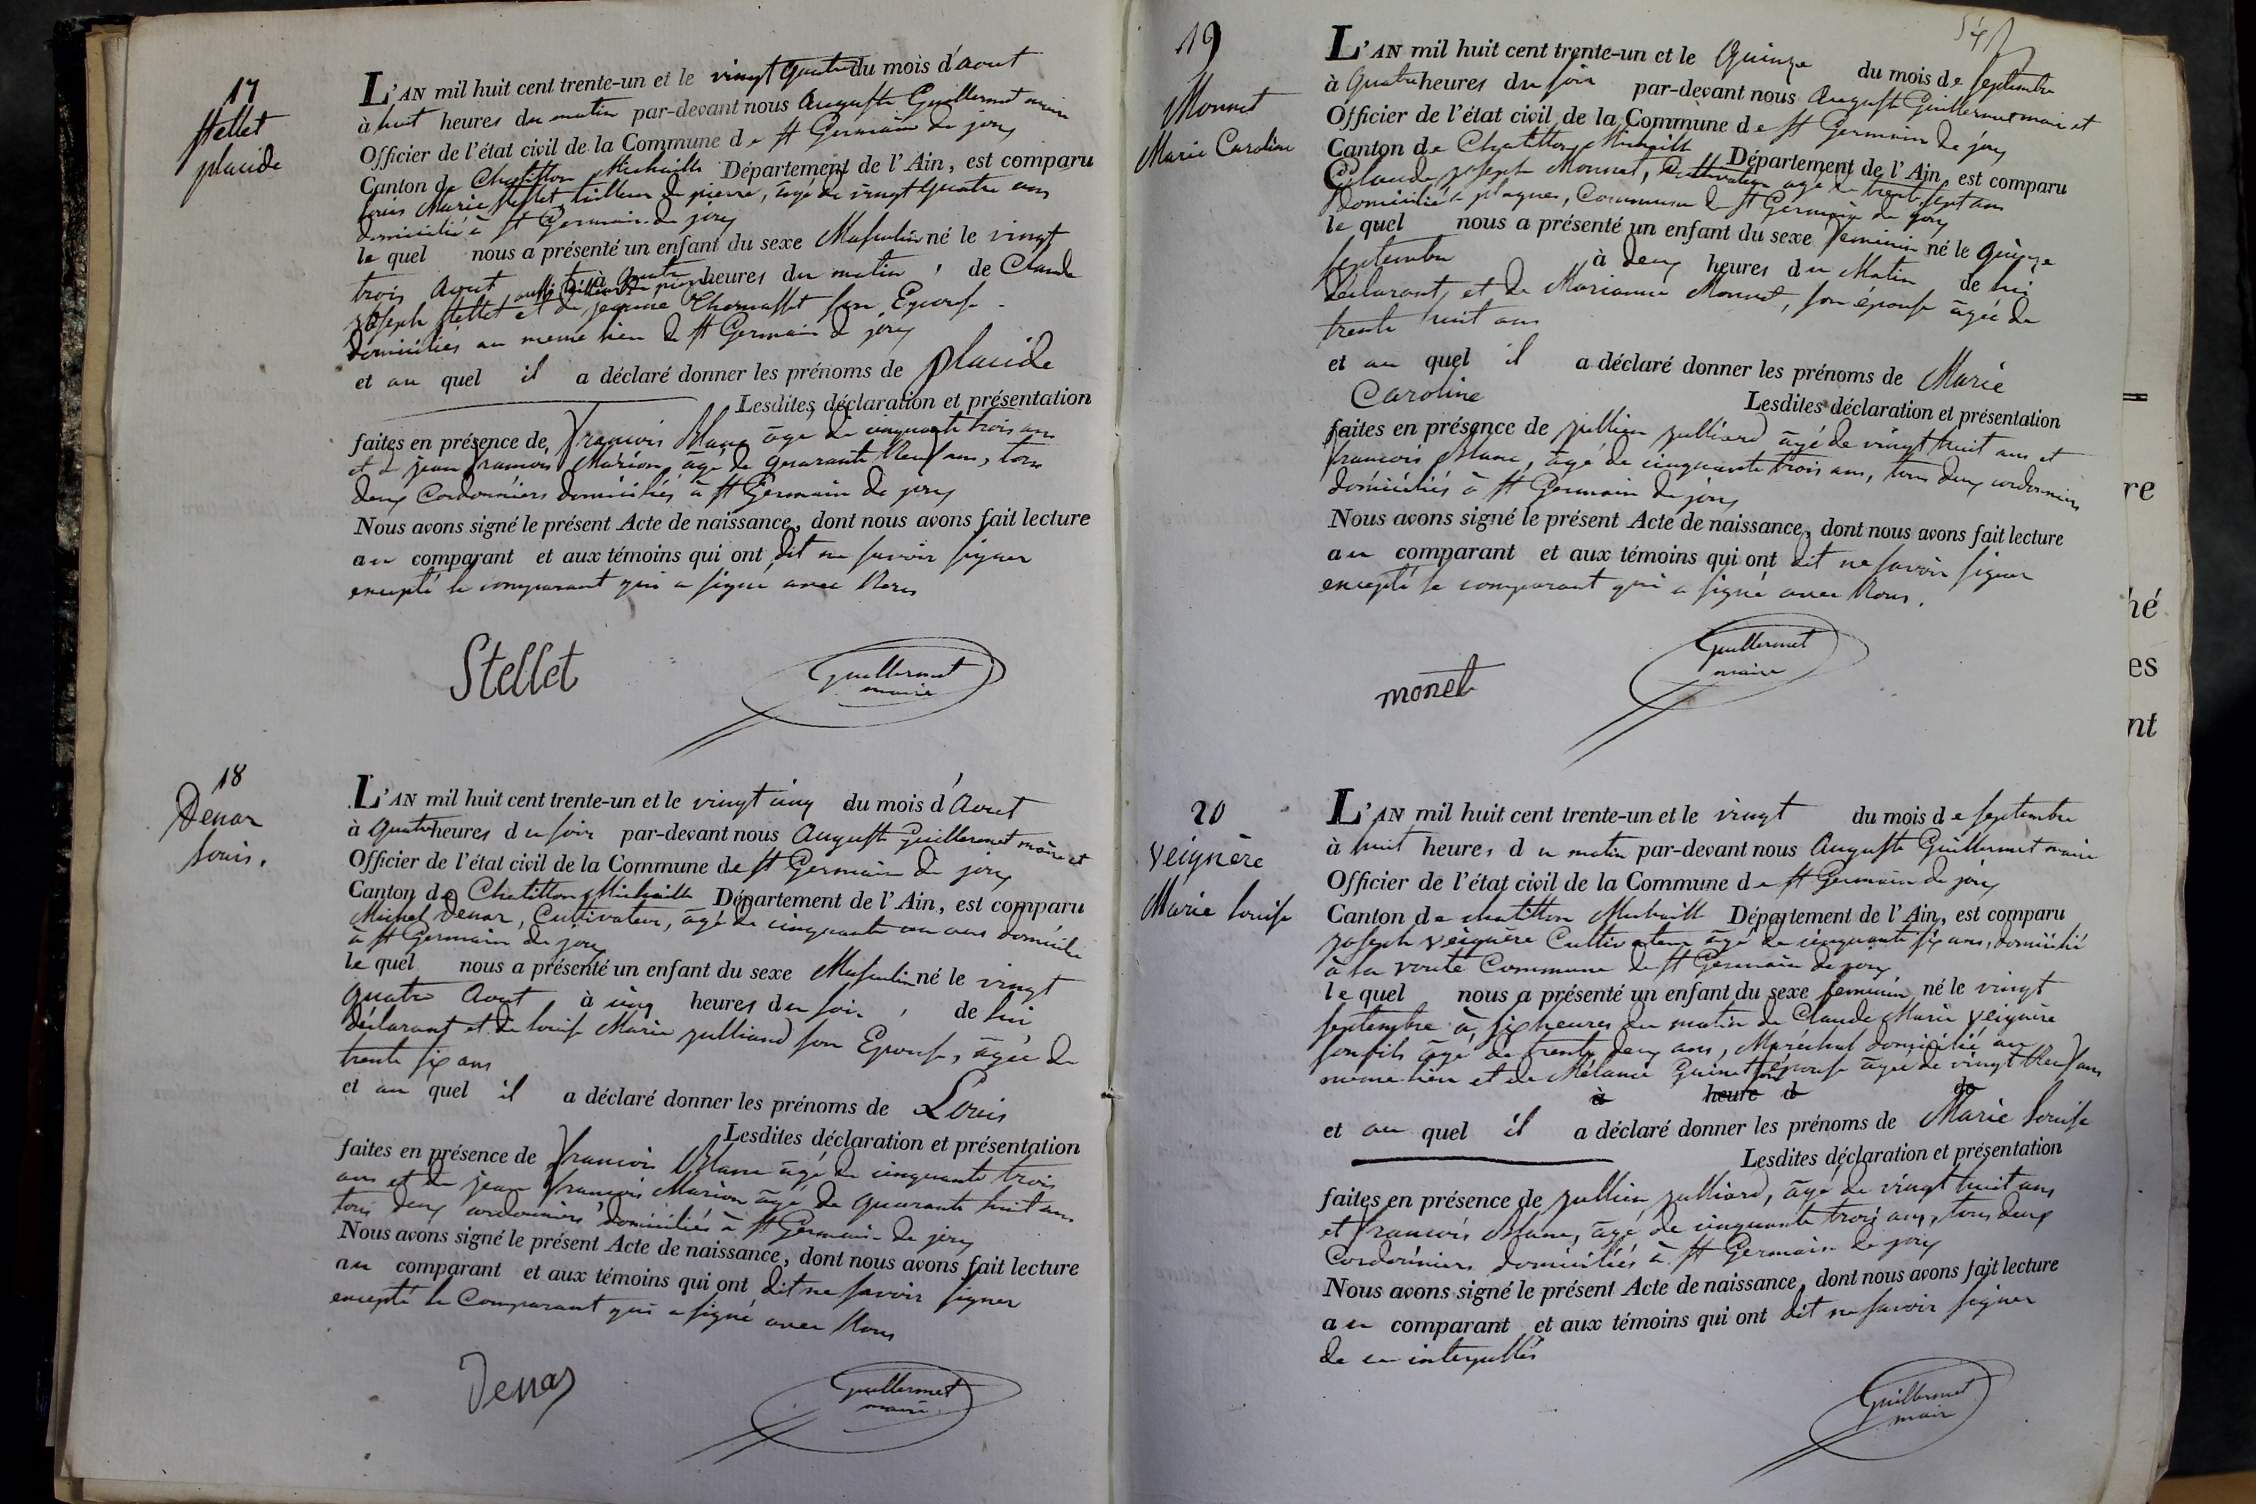 17
Stellet
placide
L'AN mil huit cent trente-un et le vingt quatre du mois d'aout
à huit heures du matin par-devant nous Auguste Guillermet maire
Officier de l'état civil de la Commune de St Germain de joux
Canton de Chatillon Michaille Département de l'Ain, est comparu
Louis Marie Stellet, tailleur de pierre, âgé de vingt quatre ans
domicilié à St Germain de joux
le quel nous a présenté un enfant du sexe Masculin né le vingt
trois Aout à quatre heures du matin, de Claude
joseph Stellet aussi tailleur de pierre et de jeanne Thomasset son Epouse
domiciliés au meme lieu de St Germain de joux
et au quel il a déclaré donner les prénoms de placide
Lesdites déclaration et présentation
faites en présence de francois Blanc âgé de cinquante trois ans
et de jean francois Marion âgé de quarante neuf ans, tous
deux Cordonniers domiciliés à St Germain de joux
Nous avons signé le présent Acte de naissance, dont nous avons fait lecture
au comparant et aux témoins qui ont dit ne savoir signer
excepté le comparant qui a signé avec Nous
Stellet
Guillermet
maire
18
Denar
Louis.
L'AN mil huit cent trente-un et le vingt cinq du mois d'Aout
à quatre heures du soir par-devant nous Auguste Guillermet maire et
Officier de l'état civil de la Commune de St Germain de joux
Canton de Chatillon Michaille Département de l'Ain, est comparu
Michel Denar, Cultivateur, âgé de cinquante un ans domicilié
à St Germain de joux
le quel nous a présenté un enfant du sexe Masculin né le vingt
quatre Aout à cinq heures du soir, de lui
déclarant et de Louise Marie julliard son Epouse, âgée de
trente six ans
et au quel il a déclaré donner les prénoms de Louis
Lesdites déclaration et présentation
faites en présence de francois Blanc âgé de cinquante trois
ans et de jean francois Marion âgé de quarante huit ans
tous deux cordonniers domiciliés à St Germain de joux
Nous avons signé le présent Acte de naissance, dont nous avons fait lecture
au comparant et aux témoins qui ont dit ne savoir signer
excepté le Comparant qui a signé avec Nous
Denar
Guillermet
maire
19
Monnet
Marie Caroline
L'AN mil huit cent trente-un et le Quinze du mois de Septembre
à quatre heures du soir par-devant nous Auguste Guillermet maire et
Officier de l'état civil de la Commune de St Germain de joux
Canton de Chatillon Michaille Département de l'Ain, est comparu
Claude joseph Monnet, Cultivateur âgé de trente sept ans
domicilié à plagnes, Commune de St Germain de joux
le quel nous a présenté un enfant du sexe feminin né le Quinze
septembre à deux heures du Matin de lui
déclarant, et de Marianne Monnet, son épouse âgée de
trente huit ans
et au quel il a déclaré donner les prénoms de Marie
Caroline
Lesdites déclaration et présentation
faites en présence de jullien julliard âgé de vingt huit ans et
francois Blanc, âgé de cinquante trois ans, tous deux cordonniers
domiciliés à St Germain de joux
Nous avons signé le présent Acte de naissance, dont nous avons fait lecture
au comparant et aux témoins qui ont dit ne savoir signer
excepté le comparant qui a signé avec Nous.
monet
Guillermet
maire
20
Veignère
Marie Louise
L'AN mil huit cent trente-un et le vingt du mois de septembre
à huit heures du matin par-devant nous Auguste Guillermet maire
Officier de l'état civil de la Commune de St Germain de joux
Canton de chatillon Michaille Département de l'Ain, est comparu
joseph veignère Cultivateur âgé de cinquante six ans, domicilié
à la voute Commune de St Germain de joux
le quel nous a présenté un enfant du sexe feminin né le vingt
septembre à six heures du matin de Claude Marie Veignère
son fils âgé de trente deux ans, Maréchal domicilié au
meme lieu et de Mélanie Guinet son épouse âgée de vingt Neuf ans
à heure d de
et au quel il a déclaré donner les prénoms de Marie Louise
Lesdites déclaration et présentation
faites en présence de jullien julliard, âgé de vingt huit ans
et francois Blanc, âgé de cinquante trois ans, tous deux
Cordonniers domiciliés à St Germain de joux
Nous avons signé le présent Acte de naissance, dont nous avons fait lecture
au comparant et aux témoins qui ont dit ne savoir signer
de ce interpellés
Guillermet
maire
re
hé
es
nt